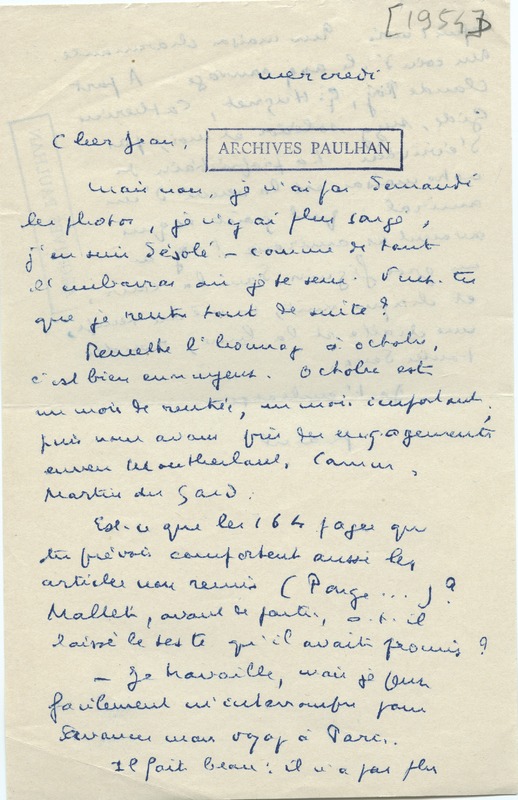 [1954]
mercredi
Cher Jean,
ARCHIVES PAULHAN
Mais non, je n'ai pas demandé
les photos, je n'y ai plus songé,
j'en suis désolé – comme de tout
l'embarras où je te sens. Veux-tu
que je rentre tout de suite?
Remettre l'hommage à octobre,
c'est bien ennuyeux. Octobre est
un mois de rentrée, un mois important,
puis nous avons pris des engagements
envers Montherland, Camus,
Martin du Gard.
Est-ce que les 164 pages que
tu prévois comportent aussi les
articles non remis (Ponge ...)?
Mallet, avant de partir, a-t-il
laissé le texte qu'il avait promis?
– Je travaille, mais je peux
facilement m'interrompre pour
avancer mon voyage à Paris.
Il fait beau: il n'a pas plu